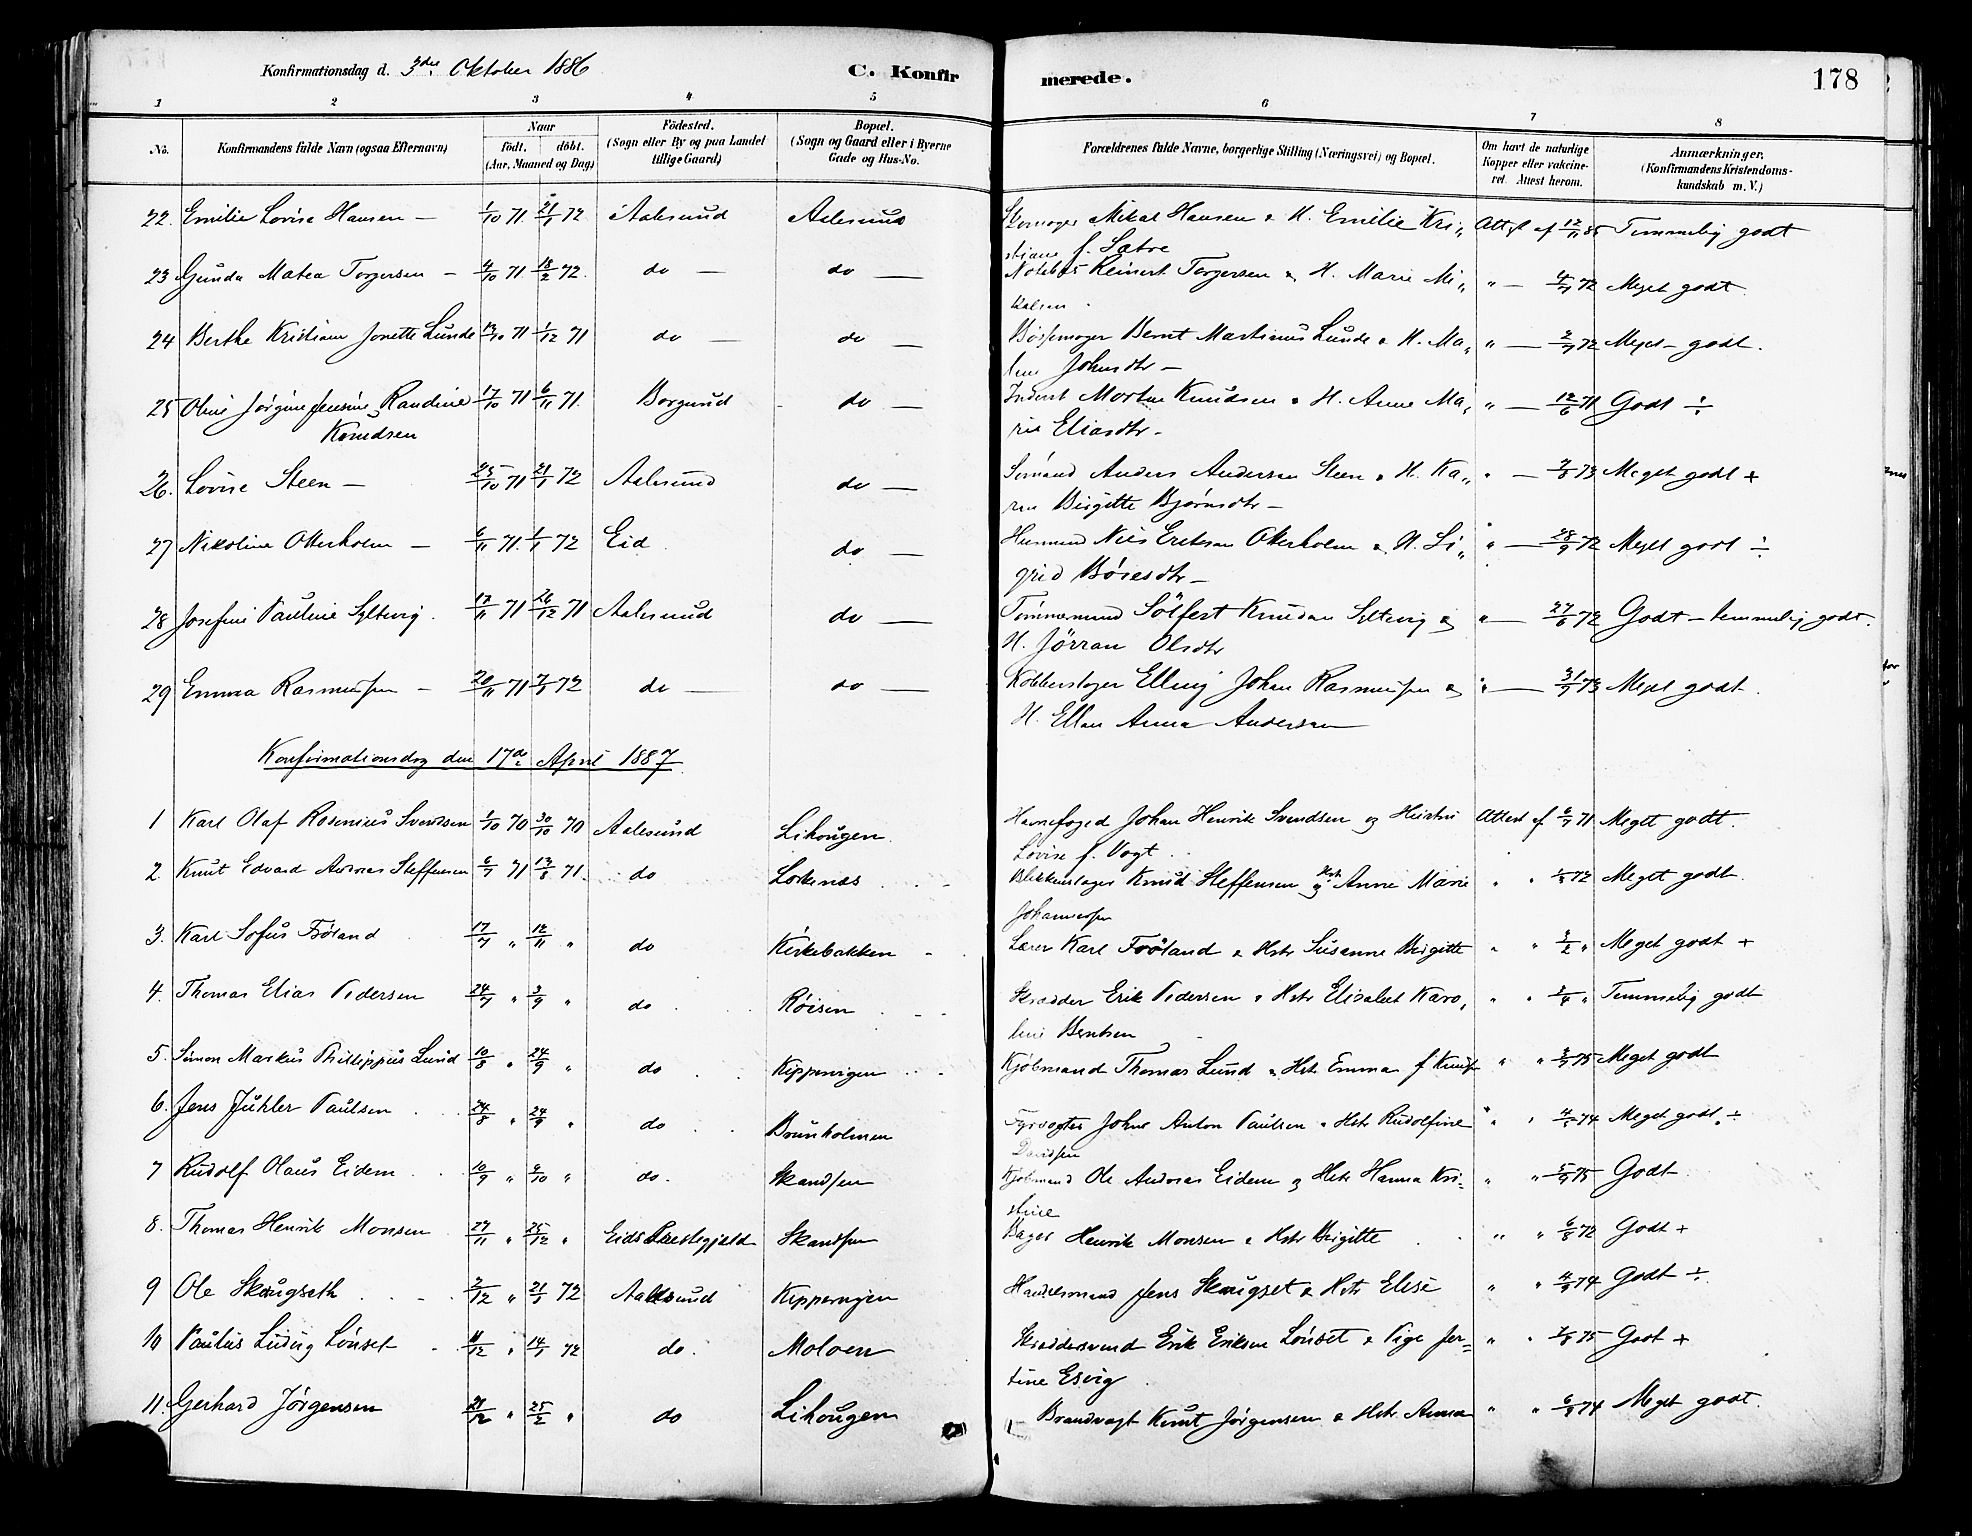 Konfirmationsdag d. 3die Oktober 1886 C. Konfirmerede. 178
1 2 3 4 5 6 7 8
No. Konfirmandens fulde Navn (ogsaa Efternavn) Naar födt. döbt. (Aar, Maaned og Dag) Födested. (Sogn eller By og paa Landet tillige Gaard) Bopæl. (Sogn og Gaard eller i Byerne Gade og Hus-No. Forældrenes fulde Navne, borgerlige Stilling (Næringsvei) og Bopæl. Om havt de naturlige Kopper eller vakcineret. Attest herom. Anmærkninger, (Konfirmandens Kristendomskundskab m. V.)
22. Emilie Lovise Hansen – 1/10 71 21/1 72 Aalesund Aalesund Skomager Mikal Hansen & H. Emilie Kri„ Attest af 12/11 85 Temmelig godt
stiane f. Sætre
23 Gunda Matea Torgersen – 4/10 71 18/2 72. do — do — Reinert Torgersen & H. Marie Mi„ „ — 4/7 72 Meget godt.
kalsen.
24 Berthe Kristiane Jonette Lunde 13/10 71 1/12 71 do — do — Bössemager Bernt Martinus Lunde & H. Ma„ „ — 2/7 72 Meget godt.
lene Johnsdtr –
25 Oline Jörgine Jensine Randine 17/10 71 6/11 71. Borgund do — Inderst Morten Knudsen & H. Anne Ma„ „ — 12/6 71 Godt ÷
Knudsen rie Eliasdtr –
26. Lovise Steen – 25/10 71 21/1 72 Aalesund do — Sömand Anders Andersen Steen & H. Ka„ „ — 7/8 73 Meget godt +
ren Birgitte Björnsdtr –
27 Nikoline Otterholm – 6/11 71. 1/1 72 Eid do — Husmand Nils Eriksen Otterholm & H. Si„ „ — 28/9 72 Meget godt ÷
grid Böiesdtr –
28 Josefine Pauline Syltevig. 17/11 71 26/12 71 Aalesund do — Tömmermand Sölfest Knudsen Syltevig & „ — 27/6 72 Godt – temmelig godt.
H. Jörran Olsdtr
29 Emma Rasmussen – 20/11 71 7/1 72 do — do — Kobberslager Elling Johan Rasmussen & „ — 31/7 73 Meget godt.
H. Ellen Anna Andersen
Konfirmationsdag den 17de April 1887.
1 Karl Olaf Rosenius Svendsen 1/10 70 30/10 70 Aalesund Lihougen. Havnefoged Johan Henrik Svendsen og Hustru Attest af 6/7 71 Meget godt.
Lovise f. Vogt.
2. Knut Edvard Andreas Steffensen 6/7 71 13/8 71. do Lorkenæs Blikkenslager Knud Steffensen og Hstr Anne Marie „ „ 72 Meget godt.
Johannessen
3. Karl Sofus Fröland 17/7 „ 12/11 „ do Kirkebakken Lærer Karl Fröland & Hstr Susanne Birgitte „ „ „ Meget godt +
4. Thomas Elias Pedersen 24/7 „ 3/9 „ do Röisen Skrædder Erik Pedersen & Hstr Elisabet Karo- „ „ „ Temmelig godt
line Berntsen
5. Simon Markus Phillippus Lund 10/8 „ 24/9 „ do Kippervigen Kjöbmand Thomas Lund & Hstr Emma f „ „ 75 Meget godt
6. Jens Juhler Paulsen 24/8 „ 24/9 „ do Brunholmen Fyrvogter Johne Anton Paulsen & Hstr Rudolfine „ „ 74 Meget godt ÷
Davidsen
7 Rudolf Olaus Eidem 10/9 „ 9/10 „ do. Skandsen Kjöbmand Ole Andreas Eidem og Hstr Hanna Kri- „ „ 75 Godt
stine
8. Thomas Henrik Monsen 27/11 „ 25/12 „ Eids Prestegjeld Skandsen Bager Henrik Monsen & Hstr Birgitte „ „ 6/8 72 Godt +
9 Ole Skougseth 2/12 „ 21/1 72 Aalesund Kippervigen Handelsmand Jens Skougset & Hstr Elise „ „ 74 Godt ÷
10 Paulus Ludvig Lönset 11/12 „ 14/1 72 do. Moloen Skræddersvend Erik Eriksen Lönset & Pige Jer- „ „ 75 Godt +
tine Esvig
11. Gerhard Jörgensen 21/12 „ 25/2 „ do Lihougen Brandvagt Knut Jörgensen & Hstr Anna „ „ 74 Meget godt.